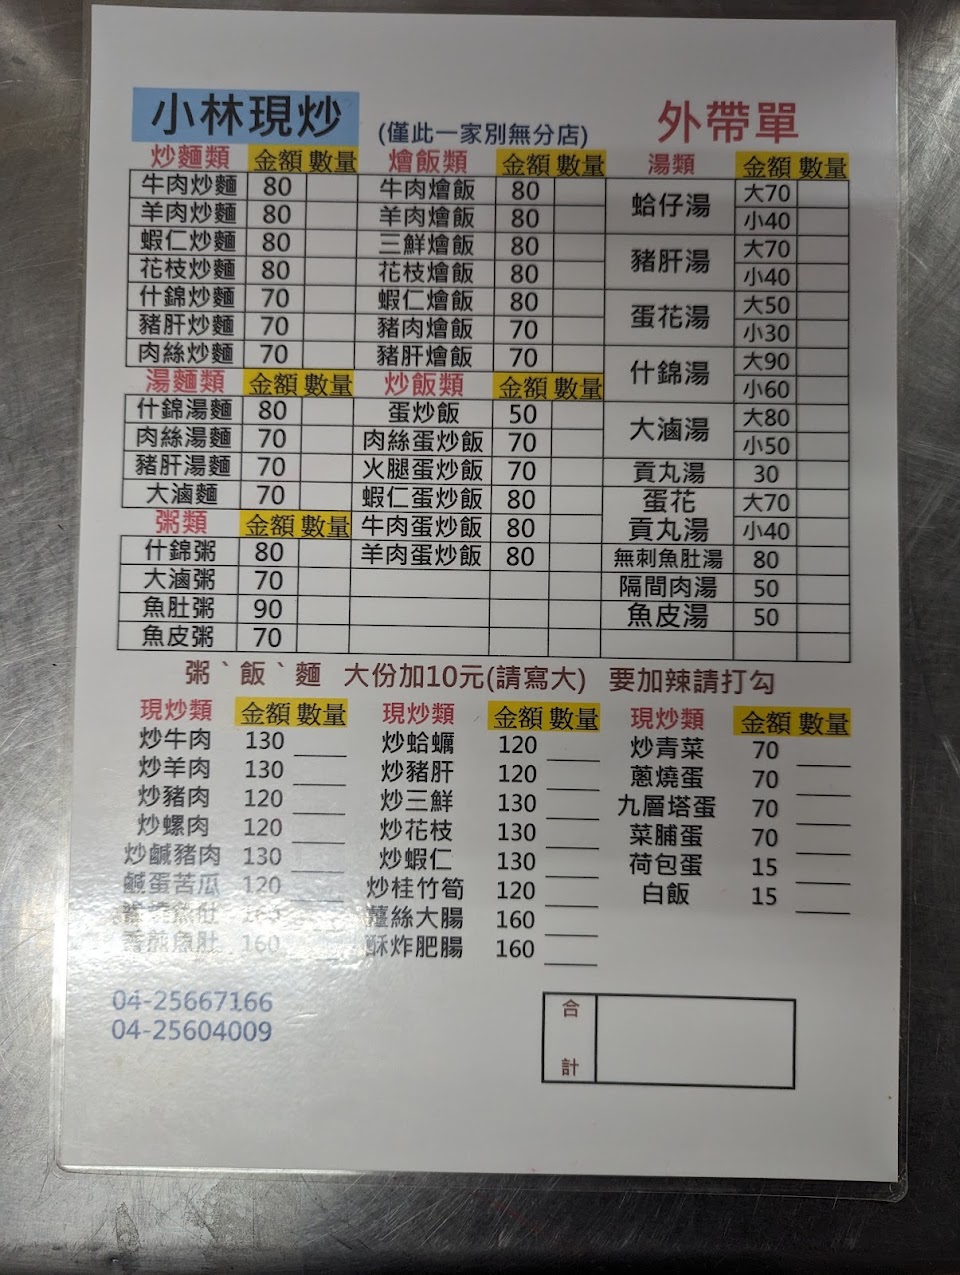 小林現炒 (僅此一家別無分店) 外帶單
炒麵類 金額 數量 燴飯類 金額 數量 湯類 金額 數量
牛肉炒麵 80 牛肉燴飯 80 蛤仔湯 大70
羊肉炒麵 80 羊肉燴飯 80 小40
蝦仁炒麵 80 三鮮燴飯 80 豬肝湯 大70
花枝炒麵 80 花枝燴飯 80 小40
什錦炒麵 70 蝦仁燴飯 80 蛋花湯 大50
豬肝炒麵 70 豬肉燴飯 70 小30
肉絲炒麵 70 豬肝燴飯 70 什錦湯 大90
湯麵類 金額 數量 炒飯類 金額 數量 小60
什錦湯麵 80 蛋炒飯 50 大滷湯 大80
肉絲湯麵 70 肉絲蛋炒飯 70 小50
豬肝湯麵 70 火腿蛋炒飯 70 貢丸湯 30
大滷麵 70 蝦仁蛋炒飯 80 蛋花 大70
粥類 金額 數量 牛肉蛋炒飯 80 貢丸湯 小40
什錦粥 80 羊肉蛋炒飯 80 無刺魚肚湯 80
大滷粥 70 隔間肉湯 50
魚肚粥 90 魚皮湯 50
魚皮粥 70
粥ˋ飯ˋ麵 大份加10元(請寫大) 要加辣請打勾
現炒類 金額 數量 現炒類 金額 數量 現炒類 金額 數量
炒牛肉 130 炒蛤蠣 120 炒青菜 70
炒羊肉 130 炒豬肝 120 蔥燒蛋 70
炒豬肉 120 炒三鮮 130 九層塔蛋 70
炒螺肉 120 炒花枝 130 菜脯蛋 70
炒鹹豬肉 130 炒蝦仁 130 荷包蛋 15
鹹蛋苦瓜 120 炒桂竹筍 120 白飯 15
魚肚 160 薑絲大腸 160
香煎魚肚 160 酥炸肥腸 160
04-25667166
04-25604009
合
計